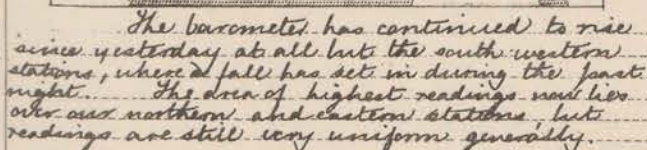 The barometer has continued to rise
since yesterday at all but the south western
stations, where a fall has set in during the past
night. The area of highest readings now lies
over our northern and eastern stations, but
readings are still very uniform generally.